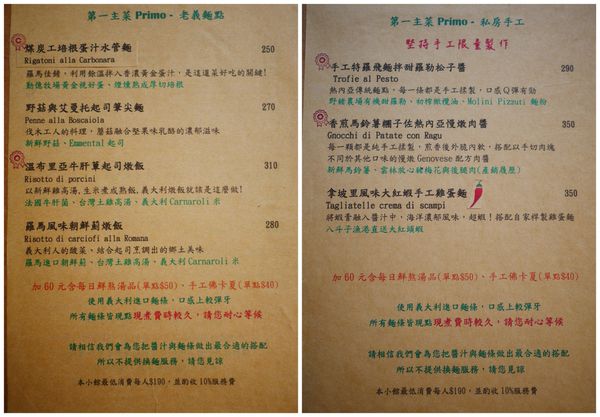 第一主菜 Primo - 老義麵點
煤炭工培根蛋汁水管麵 250
Rigatoni alla Carbonara
羅馬佳餚，利用餘溫拌入香濃黃金蛋汁，是這道菜好吃的關鍵!
勤億牧場黃金桃好蛋、煙燻熟成厚切培根
野菇與艾曼托起司筆尖麵 270
Penne alla Boscaiola
伐木工人的料理，蘑菇融合堅果味乳酪的濃郁滋味
新鮮野菇、Emmental 起司
溫布里亞牛肝蕈起司燉飯 310
Risotto di porcini
以新鮮雞高湯,生米煮成熟飯,義大利燉飯就該是這麼做!
法國牛肝菌、台灣土雞高湯、義大利Carnaroli 米
羅馬風味朝鮮薊燉飯 280
Risotto di carciofi alla Romana
義大利人的酸菜、結合起司烹調出的鄉土美味
羅馬進口朝鮮薊、台灣土雞高湯、義大利 Carnaroli 米
加 60 元含每日鮮熬湯品(單點$50)、手工佛卡夏(單點$40)
使用義大利進口麵條，口感上較彈牙
所有麵條皆現點現煮費時較久，請您耐心等候
請相信我們會為您把醬汁與麵條做出最合適的搭配
所以不提供換麵服務，請您見諒
本小館最低消費每人$190，並酌收 10%服務費
第一主菜 Primo - 私房手工
堅持手工限量製作
手工特羅飛麵拌甜羅勒松子醬 290
Trofie al Pesto
熱內亞傳統麵點，每一條都是手工揉製，口感Q彈有勁
野鶴農場有機甜羅勒、初榨橄欖油、Molini Pizzuti 麵粉
香煎馬鈴薯麵子佐熱內亞慢燉肉醬 350
Gnocchi di Patate con Ragu
每一顆都是純手工揉製，煎香後外脆內軟，搭配以手切肉塊
不同於其他口味的慢燉 Genovese 配方肉醬
新鮮馬鈴薯、雲林放心豬梅花與後腿肉(產銷履歷)
拿坡里風味大紅蝦手工雞蛋麵 350
Tagliatelle crema di scampi
將蝦膏融入醬汁中，海洋濃郁風味，超蝦！搭配自家桿製雞蛋麵
八斗子漁港直送大紅頭蝦
加 60 元含每日鮮熬湯品(單點$50)、手工佛卡夏(單點$40)
使用義大利進口麵條，口感上較彈牙
所有麵條皆現點現煮費時較久，請您耐心等候
請相信我們會為您把醬汁與麵條做出最合適的搭配
所以不提供換麵服務，請您見諒
本小館最低消費每人$190，並酌收 10%服務費